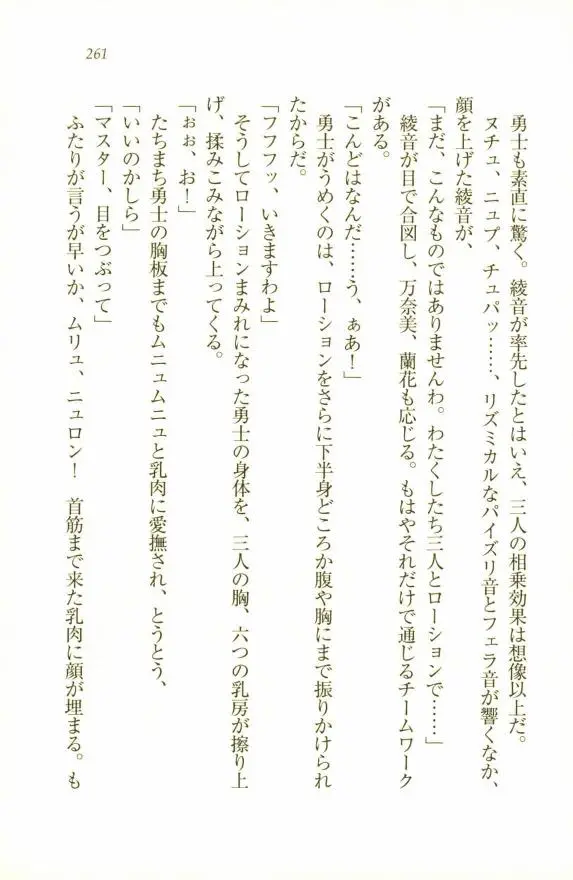 261
勇士も素直に驚く。綾音が率先したとはいえ、三人の相乗効果は想像以上だ。
ヌチュ、ニュプ、チュパッ……、リズミカルなパイズリ音とフェラ音が響くなか、
顔を上げた綾音が、
「まだ、こんなものではありませんわ。わたくしたち三人とローションで……」
綾音が目で合図し、万奈美、蘭花も応じる。もはやそれだけで通じるチームワーク
がある。
「こんどはなんだ……う、ぁあ！」
勇士がうめくのは、ローションをさらに下半身どころか腹や胸にまで振りかけられ
たからだ。
「フフフッ、いきますわよ」
そうしてローションまみれになった勇士の身体を、三人の胸、六つの乳房が擦り上
げ、揉みこみながら上ってくる。
「おぉ、お！」
たちまち勇士の胸板までもムニュムニュと乳肉に愛撫され、とうとう、
「いいのかしら」
「マスター、目をつぶって」
ふたりが言うが早いか、ムリュ、ニュロン！　首筋まで来た乳肉に顔が埋まる。も